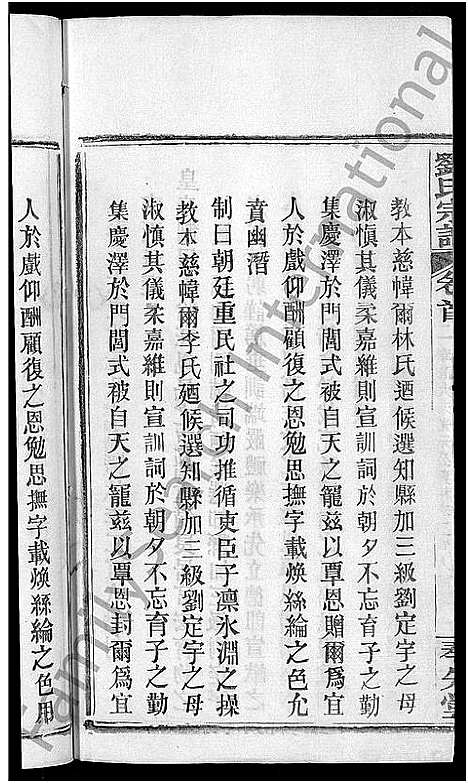 劉氏宗譜
卷首
教本慈幃爾林氏廼候選知縣加三級劉定宇之母
淑慎其儀柔嘉維則宣訓詞於朝夕不忘育子之勤
集慶澤於門閭式被自天之寵兹以覃恩贈爾爲宜
人於戲仰酬顧復之恩勉思撫字載煥絲綸之色允
賁幽潛
制曰朝廷重民社之司功推循吏臣子凛氷淵之操
教本慈幃爾李氏廼候選知縣加三級劉定宇之母
淑慎其儀柔嘉維則宣訓詞於朝夕不忘育子之勤
集慶澤於門閭式被自天之寵兹以覃恩封爾爲宜
人於戲仰酬顧復之恩勉思撫字載煥絲綸之色用
FamilySearch International